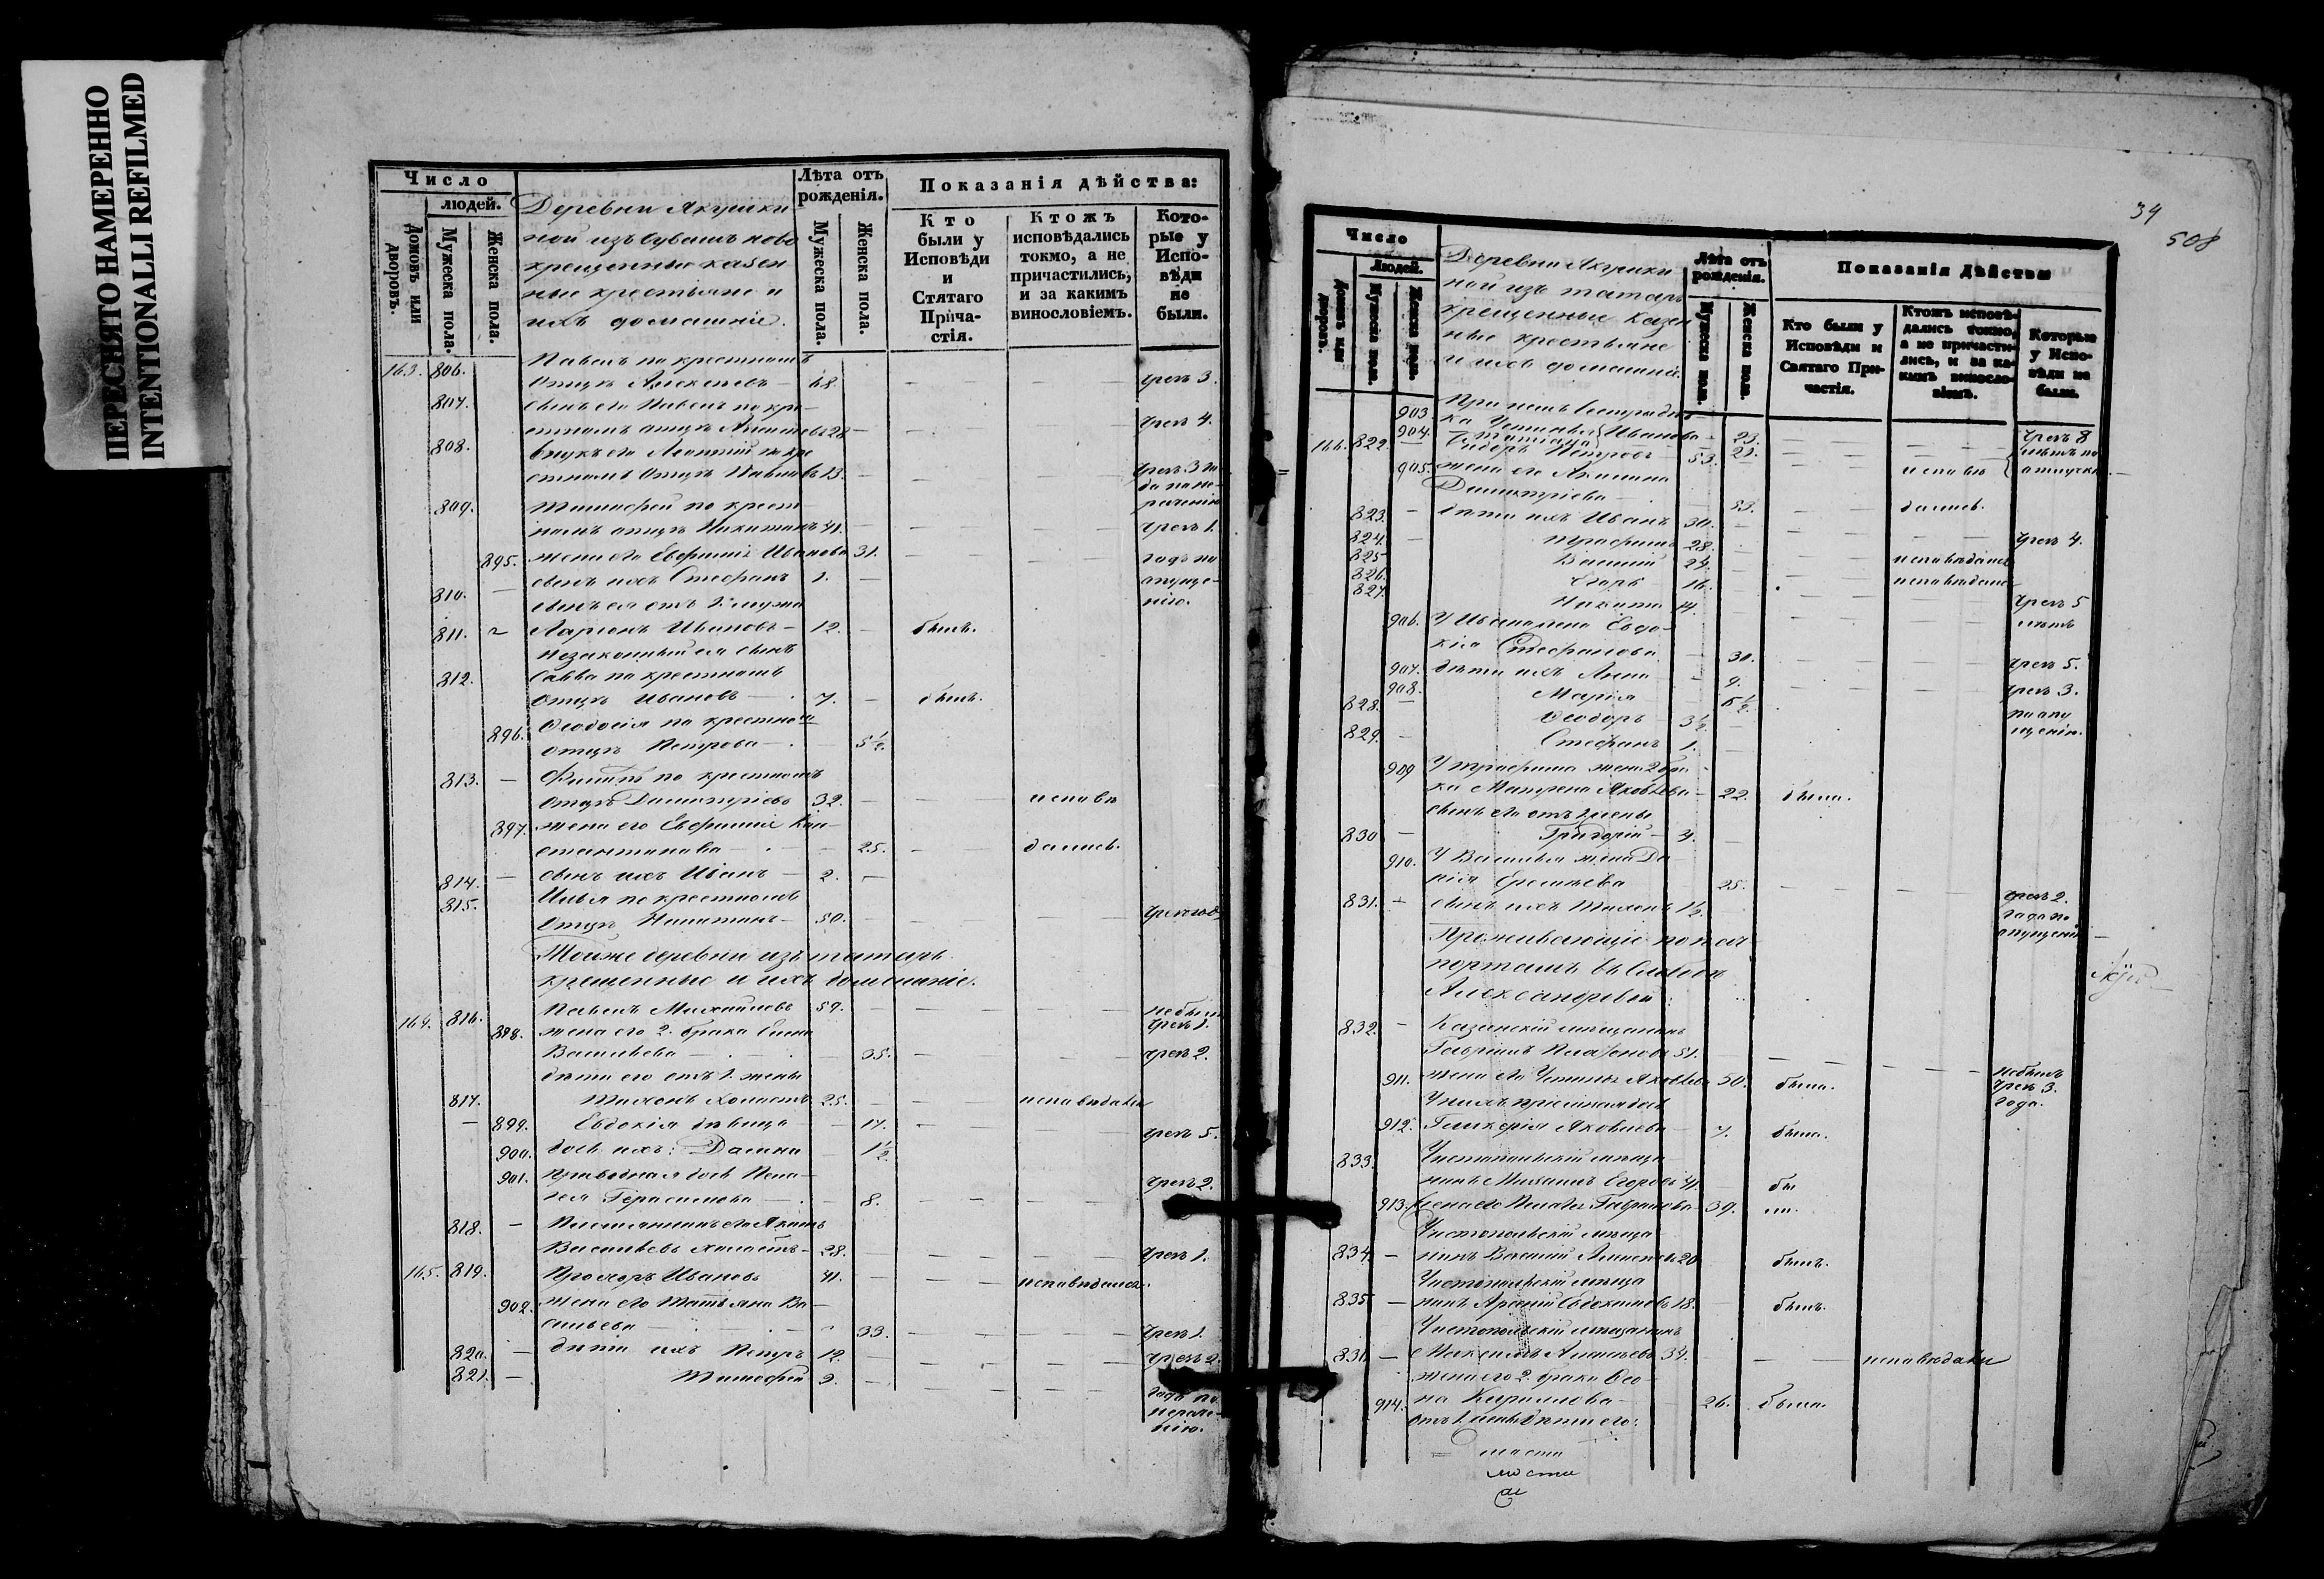 ПЕРЕСНЯТО НАМЕРЕННО
INTENTIONALLI REFILMED
Число
людей.
Домовъ или дворовъ.
Мужеска пола.
Женска пола.
Деревни Якушки
ной изъ чувашъ ново
крещенные казен
ные крестьяне и
ихъ домашніе.
Лѣта отъ рожденія.
Мужеска пола.
Женска пола.
Показанія дѣйства:
Кто были у Исповѣди и Стятаго Прича-стія.
Ктожъ исповѣдались токмо, а не причастились, и за какимъ винословіемъ.
Кото-рые у Испо-вѣди не были.
163. 806. Павелъ по крестному
отцу Алексѣевъ — 68. чрезъ 3.
807. сынъ его Павелъ по кре-
стному отцу 28 чрезъ 4.
808. внукъ его Леонтій по кре
стному отцу Павловъ 13. чрезъ 3 го
да по не-
раченію
809. Тимофей по крест
ному отцу Никитинъ 41. чрезъ 1.
895. жена его Евфимія Иванова 31. годъ по
сынъ ихъ Стефанъ 1. опуще-
810. — сынъ ея отъ 1. мужа нію.
811. Ларіонъ Ивановъ — 12. — былъ.
Незаконный ея сынъ
812. Савва по крестному
отцу Ивановъ — 7. — былъ.
896. Ѳеодосія по крестному
отцу Петрова — 5½.
813. — Филипъ по крестному
отцу Димитріевъ 32. исповѣ
897. жена его Евфимія Кон-
стантинова — 25. дались.
814. — сынъ ихъ Иванъ — 2. —
815. Илья по крестному
отцу Никитинъ — 50.
Тойже деревни изъ татаръ
крещенные и ихъ домашніе.
164. 816. Павелъ Михайловъ 59. не былъ
чрезъ 1.
898. жена его 2. брака Елена
Васильева — 35. чрезъ 2.
дѣти его отъ 1. жены
817. Тихонъ холостъ 25. исповѣдался
— 899. Евдокія дѣвица — 17. чрезъ 5.
900. дочь ихъ: Домна — 1½.
901. приводная дочь Пела-
гея Герасимова — 8. чрезъ 2.
818. — Племянникъ его Якимъ
Васильевъ холостъ — 28. чрезъ 1.
165. 819. Прохоръ Ивановъ 41. исповѣдался.
902. жена его Татьяна Ва-
сильева — 33. чрезъ 1.
820. — дѣти ихъ Петръ 12. чрезъ 2.
821. — Тимофей 9. года по
нераче-
нію.
34
508
Число
Людей.
Домовъ или дворовъ.
Мужеска пола.
Женска пола.
Деревни Якушки
ной изъ татаръ
крещенные казен
ные крестьяне
и ихъ домашніе.
Лѣта отъ рожденія.
Мужеска пола.
Женска пола.
Показанія дѣйства
Кто были у Исповѣди и Святаго При-частія.
Ктожъ исповѣ-дались токмо, а не причасти-лись, и за ка-кимъ виносло-віемъ.
Которые у Испо-вѣди не были.
903. При немъ
904. Татіана Иванова 23. 21. чрезъ 8
лѣтъ по
166. 822. Ѳедоръ Петровъ 53.
905. жена его Акилина исповѣ
Димитріева — 53. дались.
823. — дѣти ихъ Иванъ 30.
824. — Трофимъ 28. чрезъ 4.
825 Василій 24. исповѣдались
826. Егоръ 16. исповѣдался
827. Никита 14. чрезъ 5
906. У Ивана жена Евдо- лѣтъ
кія Стефанова 30. чрезъ 5.
907. дѣти ихъ Анна 9. чрезъ 3.
908. Марія 5½.
828. — Ѳеодоръ 3½. по опу
829. — Стефанъ 1. щенію.
909 У Трофима жена 2 бра-
ка Матрена Яковлева — 22. была.
сынъ его отъ 1 жены
830 — Григорій — 4.
910. У Василья жена Да
рія Еремѣева 25. чрезъ 2.
831. — сынъ ихъ Тихонъ 1½. года по
опущенію
Проживающіе по пас
портамъ въ слободѣ
Александровой:
832. — Казанскій мѣщанинъ
Гавріилъ Платоновъ 51. не былъ
чрезъ 3.
года.
911. жена его Яковлева 50. была.
У нихъ пріемная дочь
912. Гликерія Яковлева — 7. была.
833. Чистопольскій мѣща
нинъ Михаилъ Егоровъ 41. бы
913. жена его Пелагея Гаврилова 39. ли.
Чистопольскій мѣща
834 — нинъ Василій 20 былъ.
Чистопольскій мѣща
835 — нинъ Арсеній Евдокимовъ 18. былъ.
Чистопольскій мѣщанинъ
836 — Максимъ 34. исповѣдался
жена его 2. брака
914. на Кириллова — 26. была.
отъ 1 жены дѣти его: